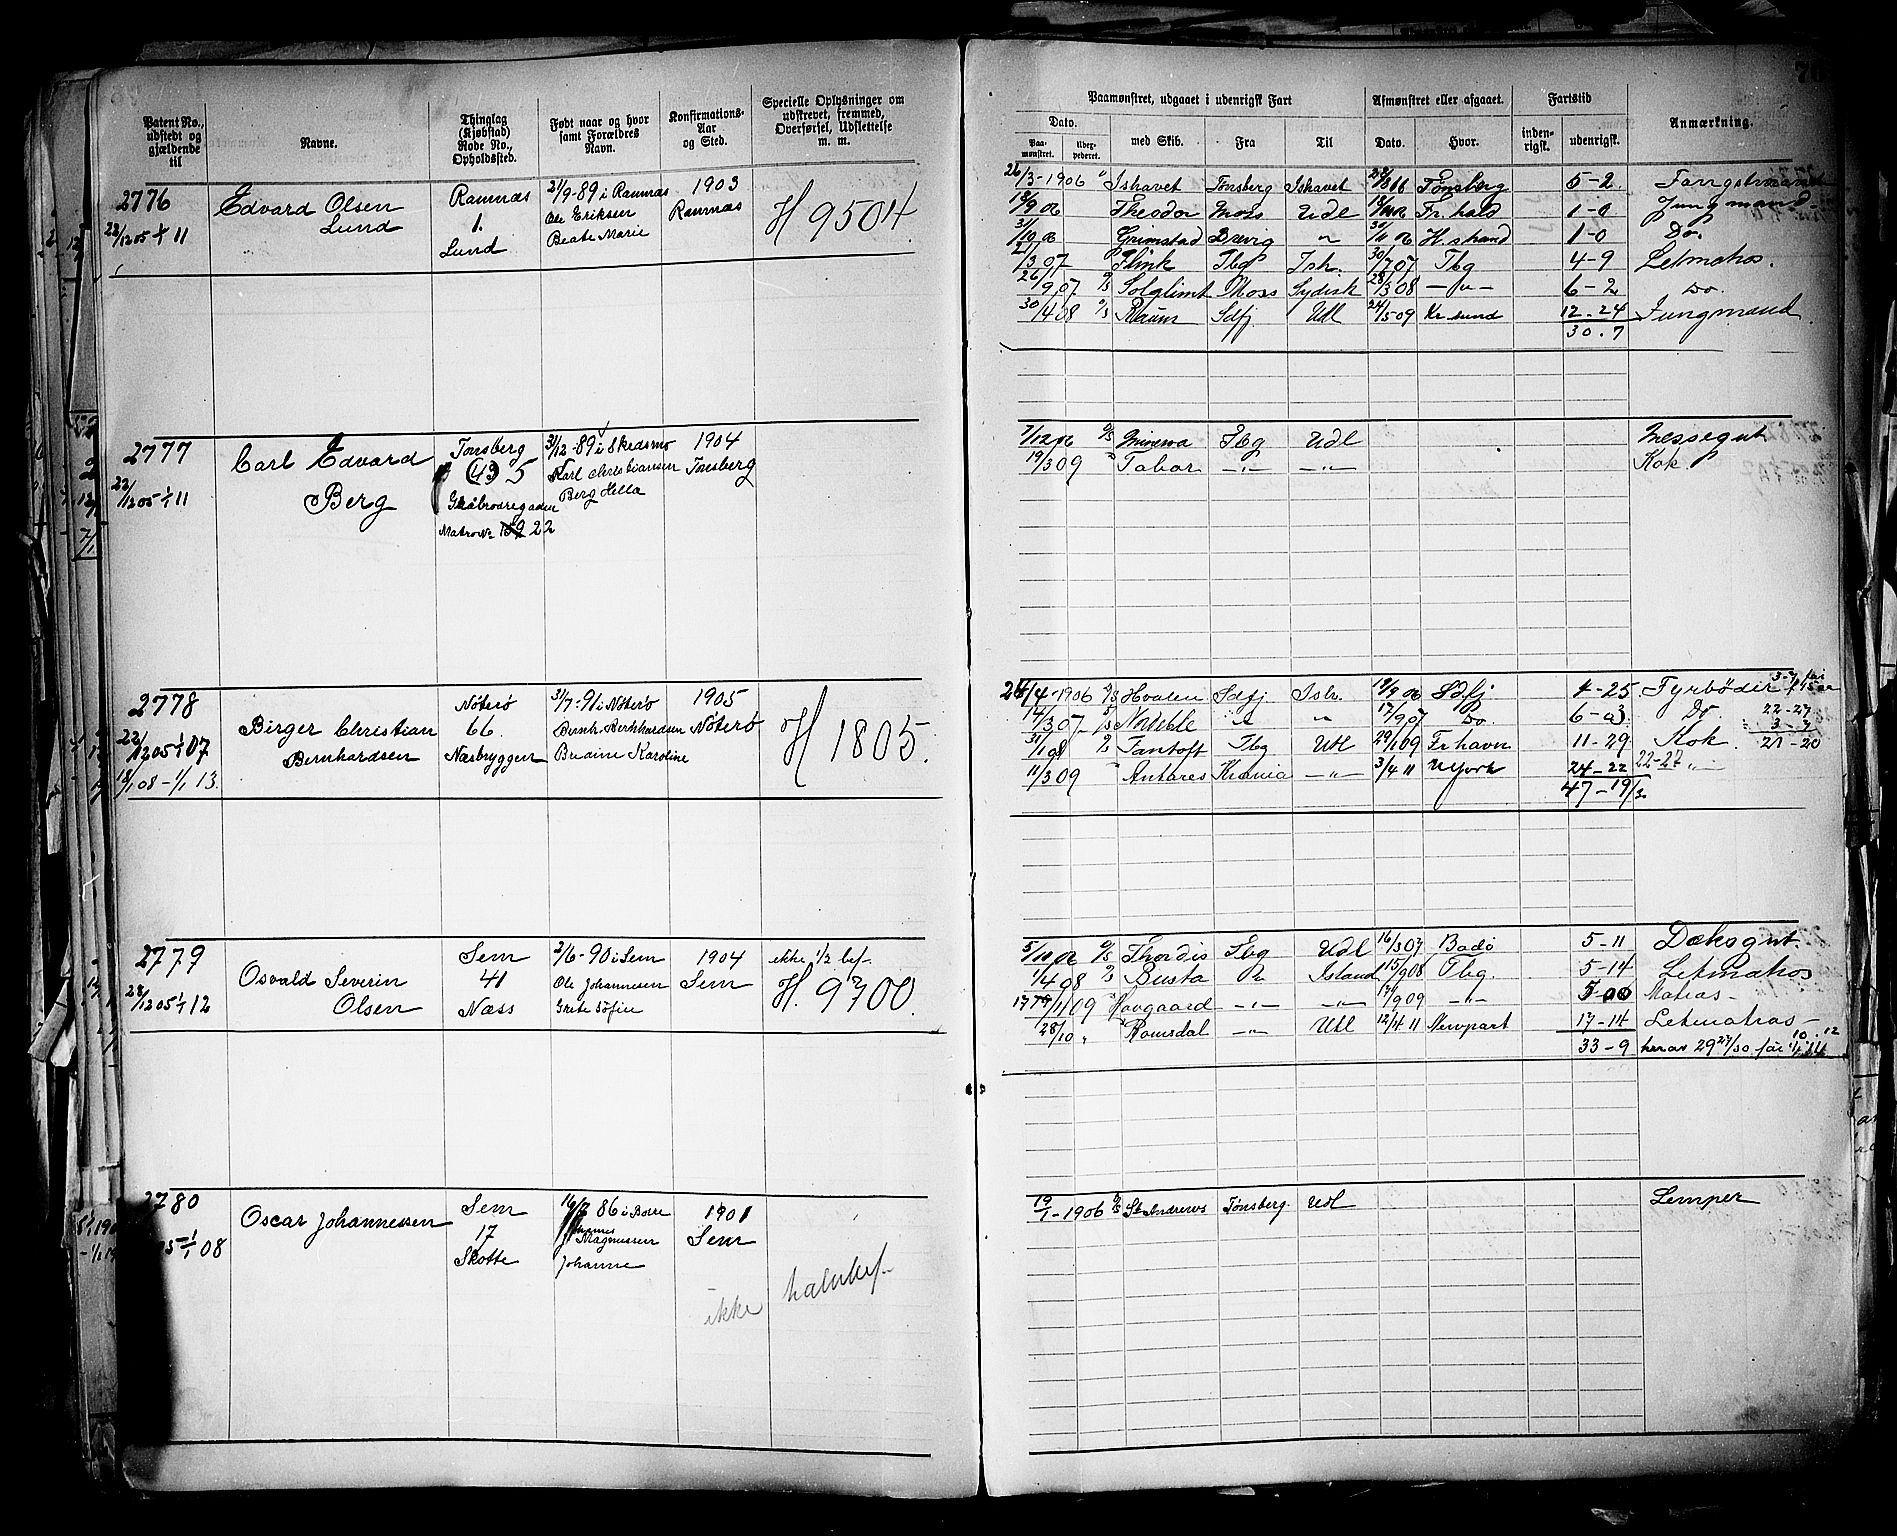 Patent No., udstedt og gjældende til
Navne.
Thinglag (Kjøbstad) Rode No., Opholdssted.
Født naar og hvor samt Forældres Navn.
Konfirmations-Aar og Sted.
Specielle Oplysninger om udstrevet, fremmed, Overførsel, Udslettelse m. m.
Paamønstret, udgaaet i udenrigsk Fart
Afmønstret eller afgaaet.
Fartstid
Anmærkning.
Dato.
Paa-mønstret.
med Skib.
Fra
Til
Dato.
Hvor.
inden-rigsk.
udenrigsk.
2776
22/12 05 1/1 11
Edvard Olsen
Lund
Ramnæs
1.
Lund
21/9-89 i Ramnæs
Ole Eriksen
Beate Marie
1903
Ramnæs
H 9504
26/3-1906 Ishavet Tønsberg Ishavet Tønsberg 5-2 Fangstmand
19/9 06 Theodor Moss Udl Fr. hald 1-0 Jungmand
31/10 06 Grimstad Brevig 30/11 06 H. strand 1-0 Do.
2/3 07 Flink Tbg Ish. 30/7 07 Tbg 4-9 Letmatros.
26/9 07 Solglimt Moss Sydish 28/3 08 -"- 6-2 Do.
30/4 08 Raum Sdfj Udl 24/5 09 Kr. sund 12-24 Jungmand
30.7
2777
22/12 05 1/1 11
Carl Edvard
Berg
Tønsberg
5
Graabrødregaden
Matr No 22
31/12-89 i Skedsmo
Karl Christiansen
Berg Hella
1904
Tønsberg
7/12 06 Minerva Tbg Udl Messegut
19/3 09 Tabor -"- -"- Kok
2778
22/12 05 1/1 07
18/1 08 - 1/1 13.
Birger Christian
Bernhardsen
Nøterø
66
Næsbryggen
31/7-91 i Nøterø
Bernh. Bernhardsen
Karoline
1905
Nøterø
H 1805.
24/4-1906 Hvalen Sdfj Ish. 19/9 06 Sdfj 4-25 Fyrbøder
14/3 07 17/9 07 Do. 6-03 Do 22-27
31/1 08 Tantoff Tbg Udl 29/1 09 Fr havn 11-29 Kok 21-20
11/3 09 Antares Krania -"- 3/4 11 N York 24-22
47-19
2779
28/12 05 1/1 12
Osvald Severin
Olsen
Sem
41
Næss
2/6-90 i Sem
Ole Johannesen
Grete Sofie
1904
Sem
ikke 1/2 bef.
H. 9700.
Thordis Tbg Udl 16/3 07 Bodø 5-11 Dæksgut
1/4 08 Busta Island Tbg. 5-14 Letmatros
Havgaard -"- -"- -"- 5-00 Matros-
28/10 " Romsdal -"- Udl 12/4 11 Newport 17-14 Letmatros-
33-9 herav 29 27/30
2780
1/1 08
Oscar Johannessen
Sem
17
Skotte
86 i Borre
Johannes Magnussen
Johanne
1901
Sem
ikke halvbef.
19/1-1906 St Andrews Tønsberg. Udl Lemper